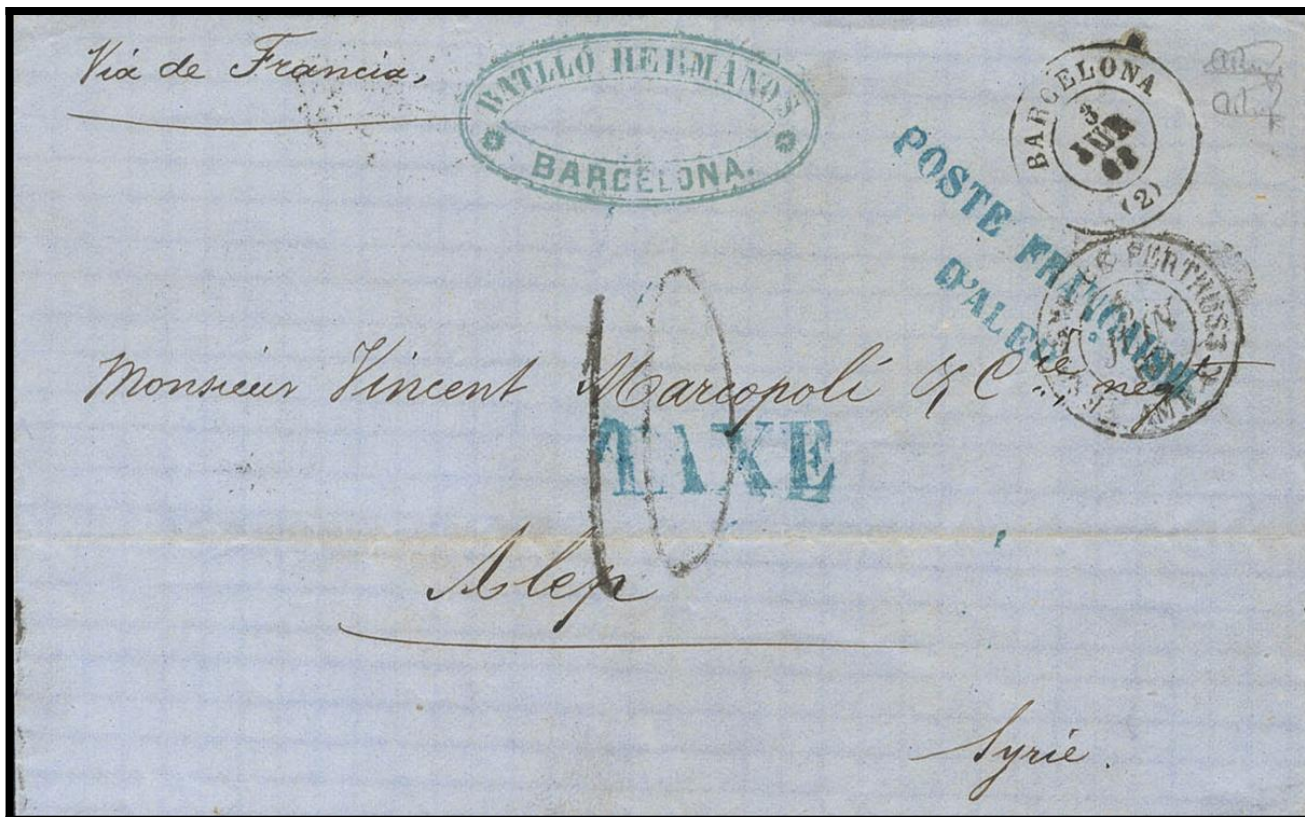 Via de Francia,
BATLLÓ HERMANOS
BARCELONA.
BARCELONA
3
68
(2)
POSTE FRANÇAISE
D'ALEP
LE PERTHUS
Monsieur Vincent Marcopoli & Cie negts
10
TAXE
Alep
Syrie.